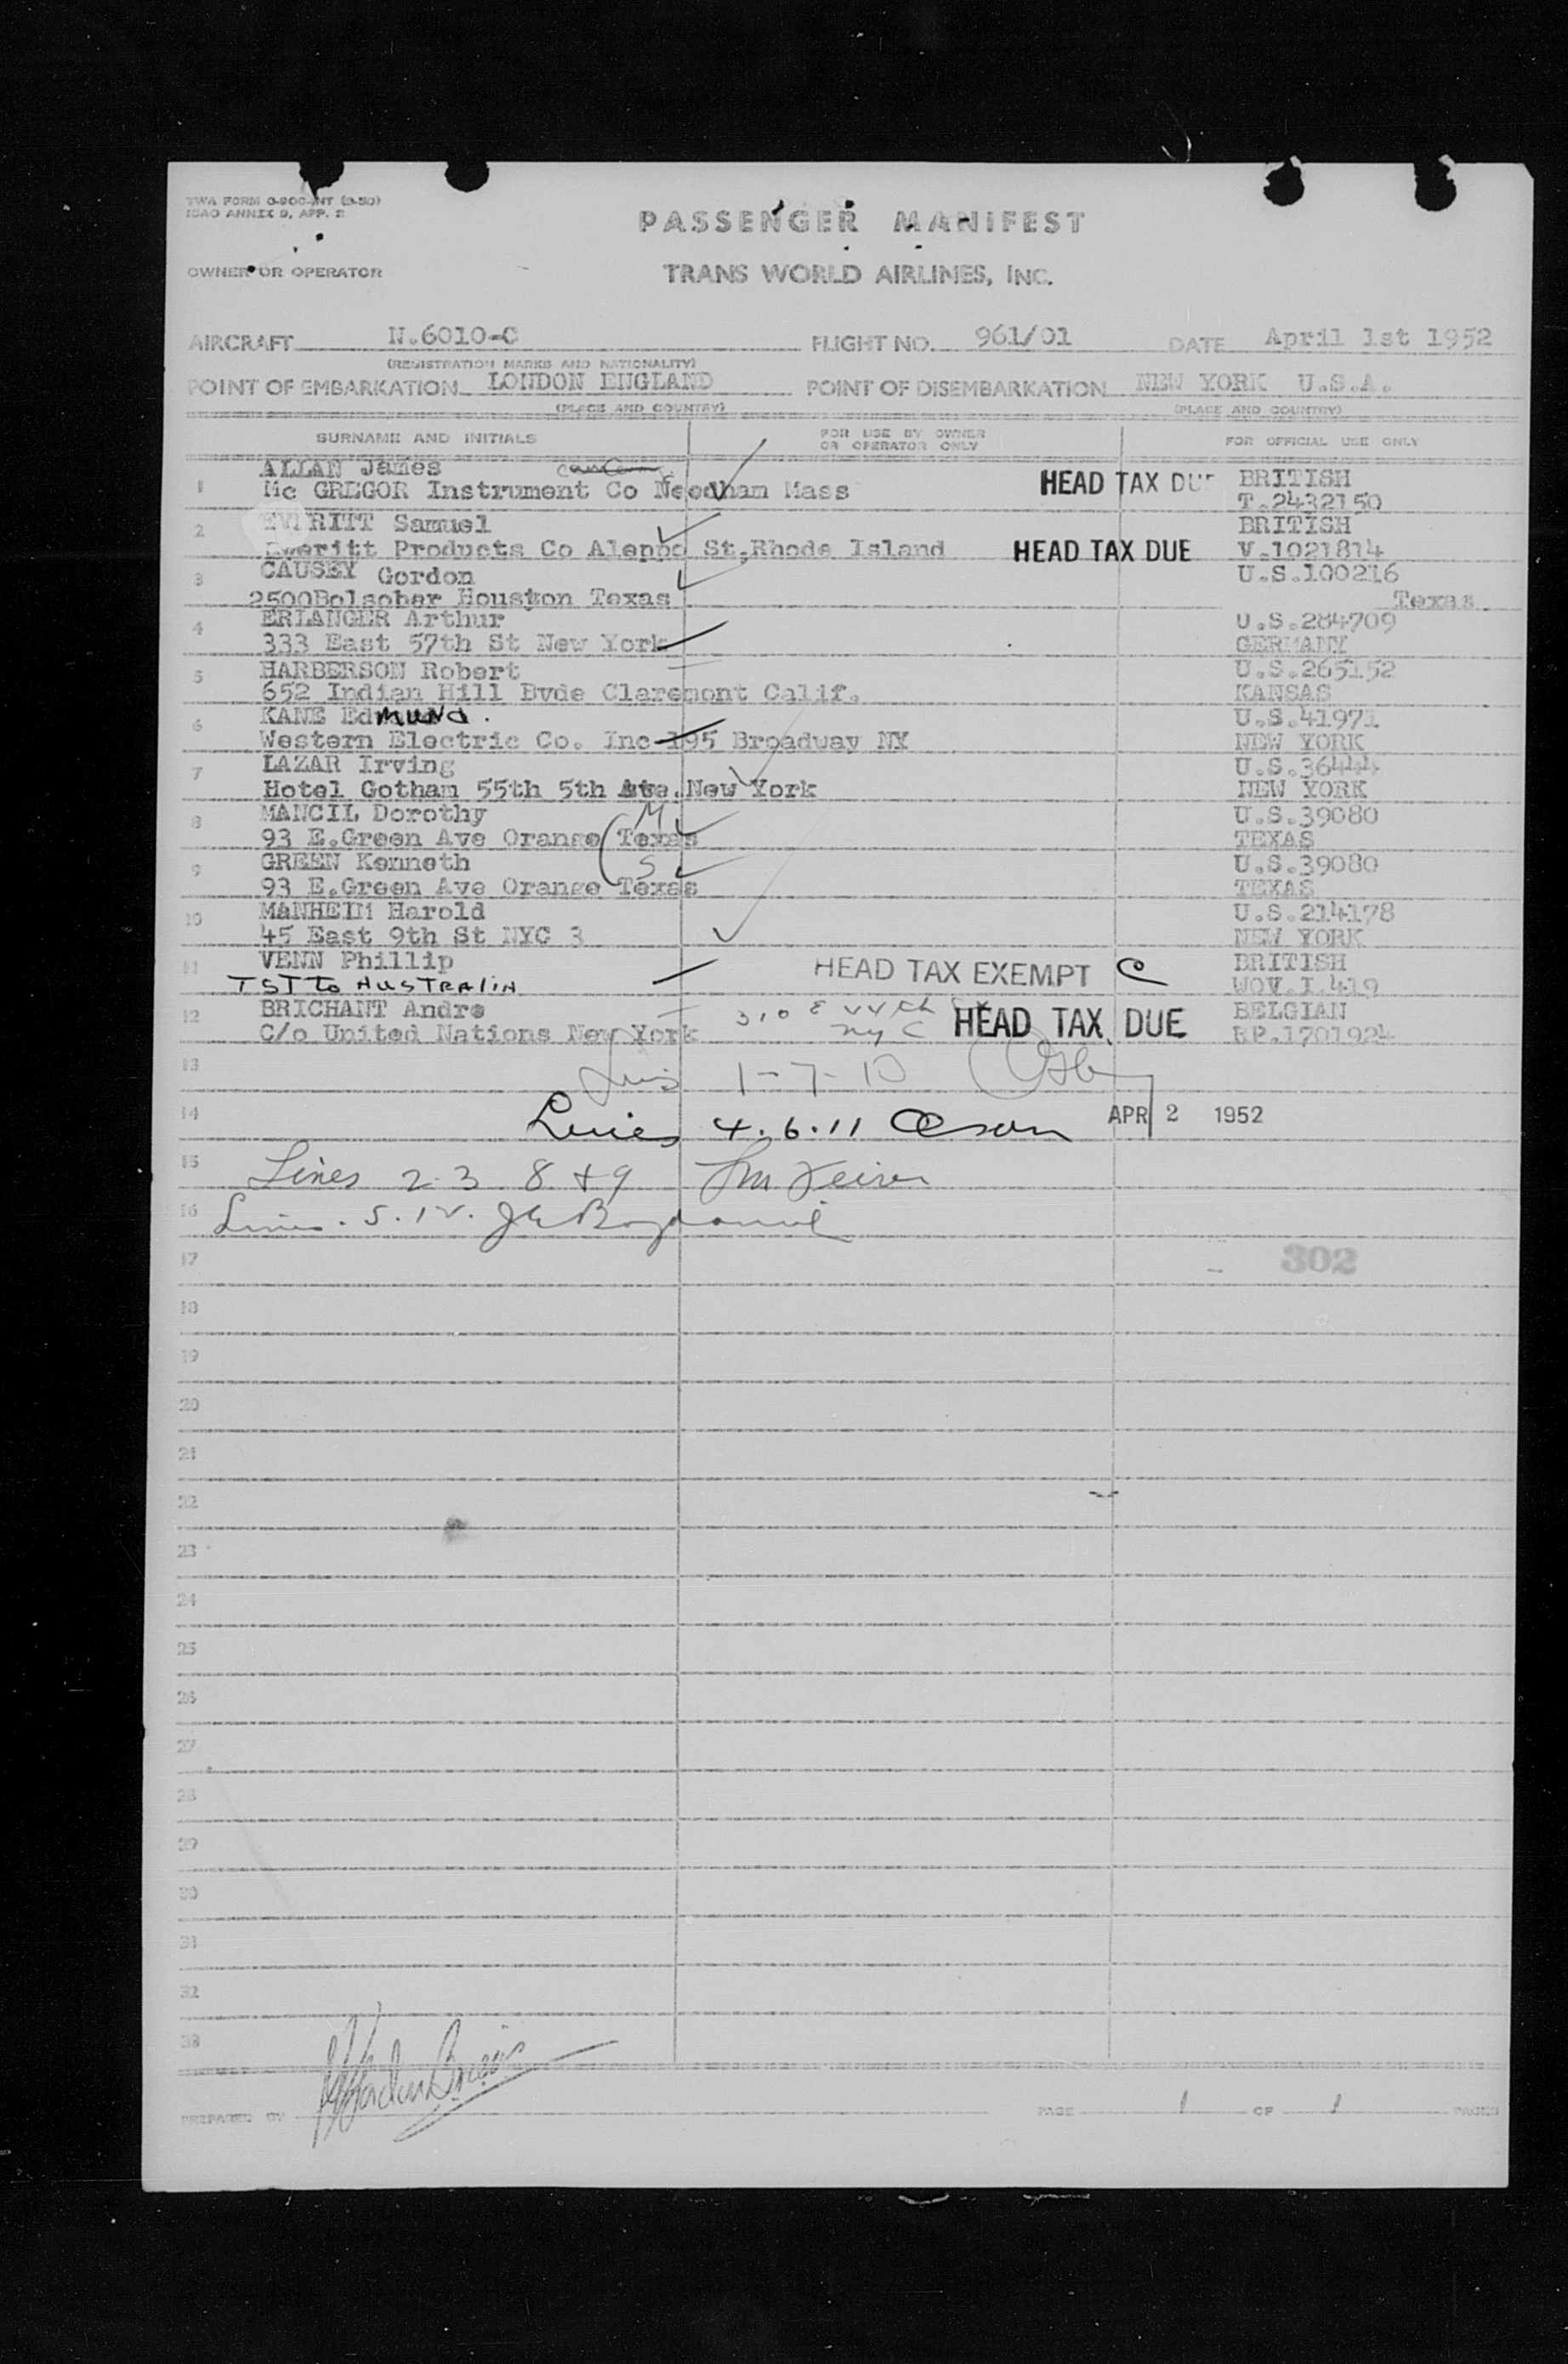 TWA FORM O-900-INT (9-50)
ICAO ANNEX 9, APP. 2
PASSENGER MANIFEST
OWNER OR OPERATOR TRANS WORLD AIRLINES, INC.
AIRCRAFT N.6010-C FLIGHT NO. 961/01 DATE April 1st 1952
(REGISTRATION MARKS AND NATIONALITY)
POINT OF EMBARKATION LONDON ENGLAND POINT OF DISEMBARKATION NEW YORK U.S.A.
(PLACE AND COUNTRY) (PLACE AND COUNTRY)
SURNAME AND INITIALS FOR USE BY OWNER OR OPERATOR ONLY FOR OFFICIAL USE ONLY
ALLAN James BRITISH
1 Mc GREGOR Instrument Co Needham Mass HEAD TAX DUE T.2432150
2 EVERITT Samuel BRITISH
Everitt Products Co Aleppo St.Rhode Island HEAD TAX DUE V.1021814
3 CAUSEY Gordon U.S.100216
2500Bolsober Houston Texas Texas
4 ERLANGER Arthur U.S.284709
333 East 57th St New York GERMANY
5 HARBERSON Robert U.S.265152
652 Indian Hill Bvde Claremont Calif. KANSAS
6 KANE Edmund. U.S.41971
Western Electric Co. Inc 195 Broadway NY NEW YORK
7 LAZAR Irving U.S.36444
Hotel Gotham 55th 5th Ave.New York NEW YORK
8 MANCIL Dorothy M U.S.39080
93 E.Green Ave Orange Texas TEXAS
9 GREEN Kenneth S U.S.39080
93 E.Green Ave Orange Texas TEXAS
10 MANHEIM Harold U.S.214178
45 East 9th St NYC 3 NEW YORK
11 VENN Phillip HEAD TAX EXEMPT C BRITISH
TST to AUSTRALIA WOV.I.419
12 BRICHANT Andre 310 E 44th St BELGIAN
C/o United Nations New York NYC HEAD TAX DUE BP.1701924
13 Lines 1-7-10
14 Lines 4.6.11 Olson APR 2 1952
15 Lines 2-3 8 + 9
16 Lines. 5.12.
17 302
18
19
20
21
22
23
24
25
26
27
28
29
30
31
32
33
PREPARED BY PAGE 1 OF 1 PAGES